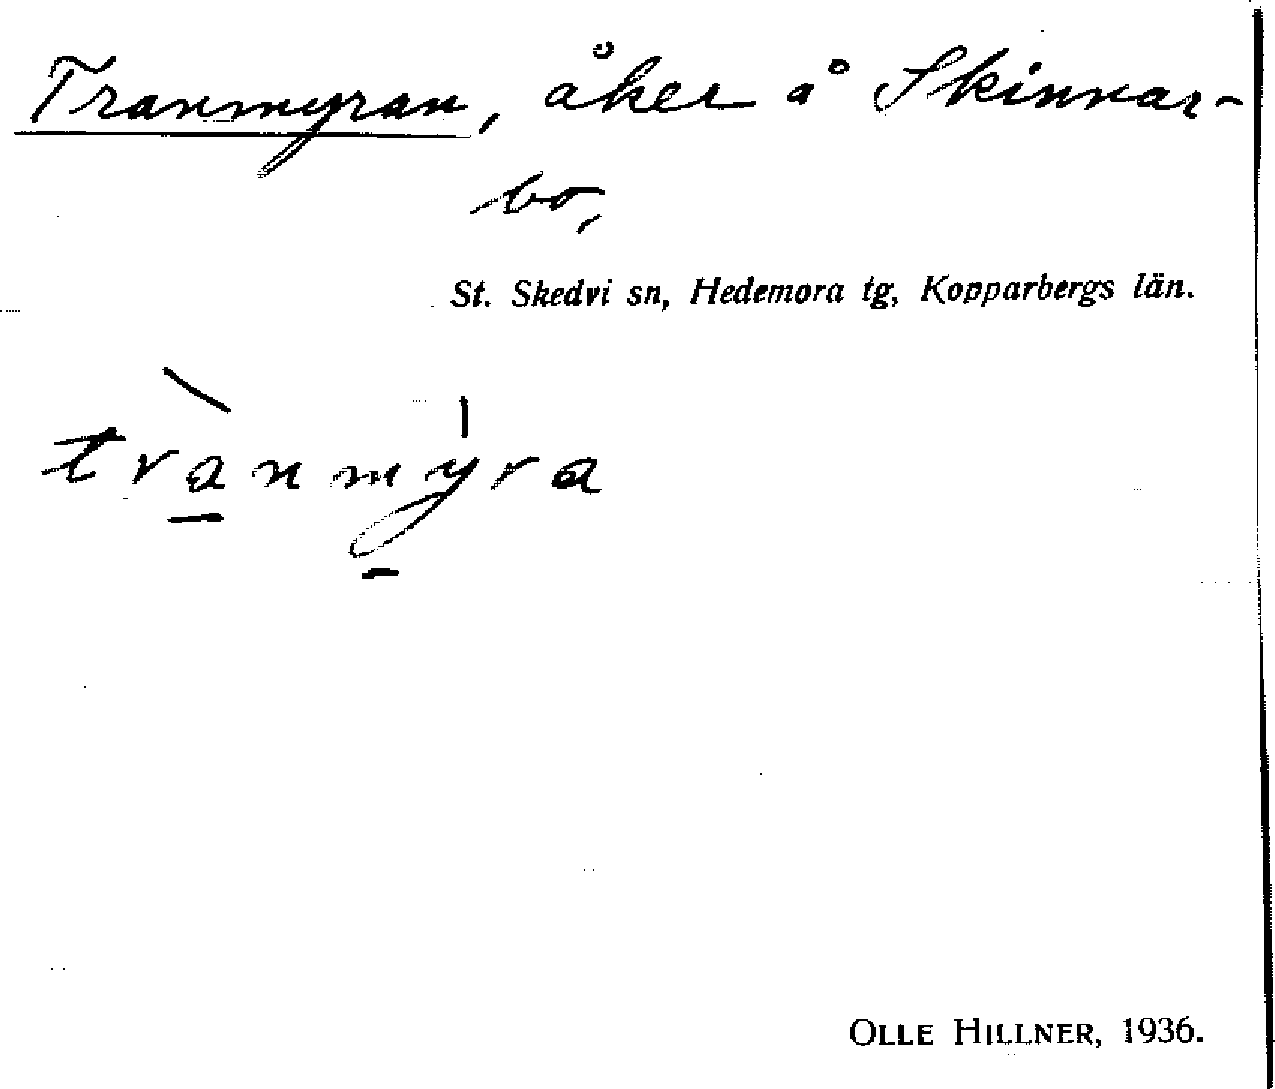 Tranmyran, åker å Skinnar-
bo,
St. Skedvi sn, Hedemora tg, Kopparbergs län.
tra̠nmy̠ra
OLLE HILLNER, 1936.